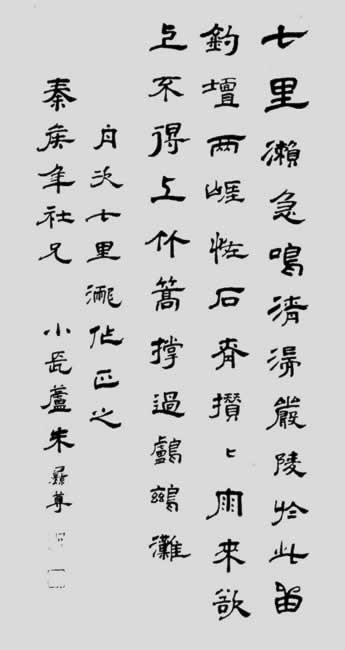 七里瀨急鳴淸湍嚴陵於此留
釣壇兩崕恠石齊攢〻雨來欲
上不得上竹篙撐過鸕鷀灘
舟次七里瀧作正之
秦矦年社兄 小長蘆朱彝尊